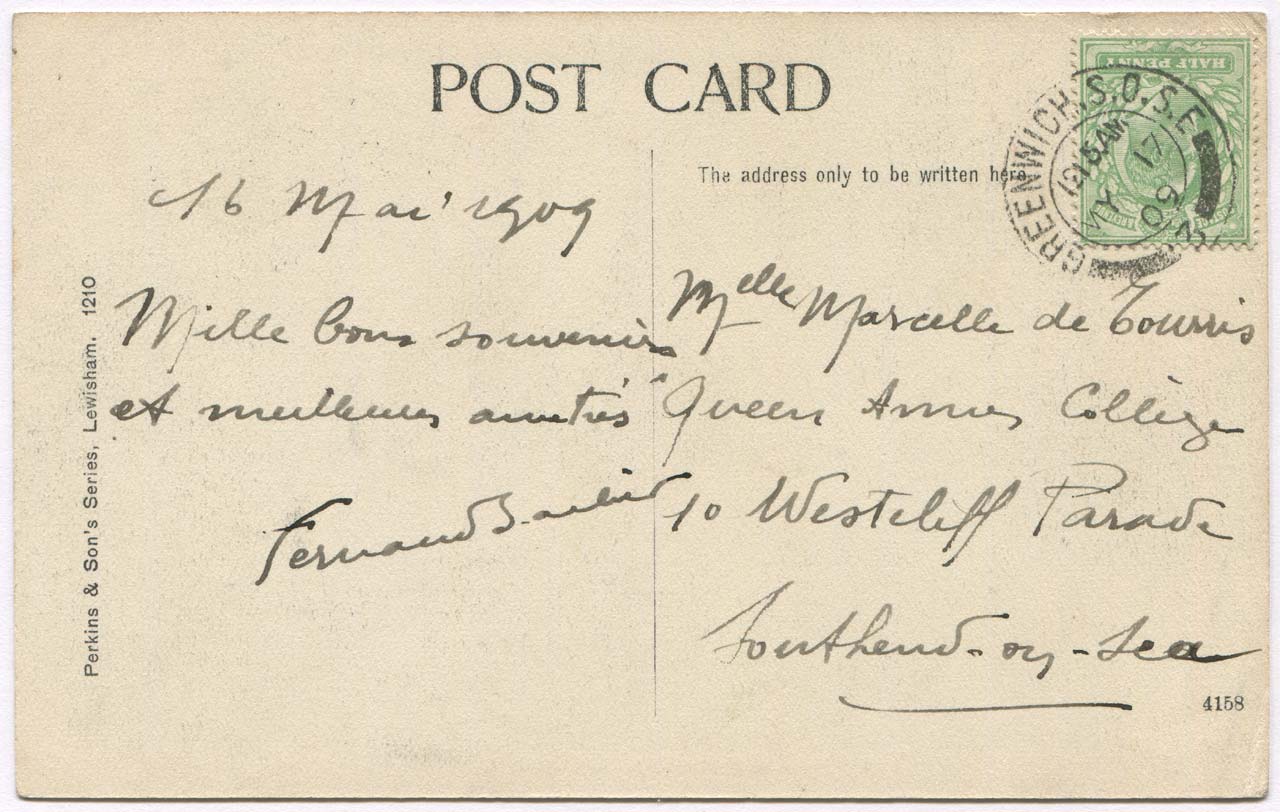 POST CARD
The address only to be written here.
HALF PENNY
GREENWICH.S.O.S.E
12 15 AM
MY 17
09
16 Mai 1909
Mille bons souvenirs
et meilleures amitiés
Fernand
Mlle Marcelle de Tourris
Queen Annes Collège
10 Westcliff Parade
Southend-on-Sea
Perkins & Son's Series, Lewisham. 1210
4158